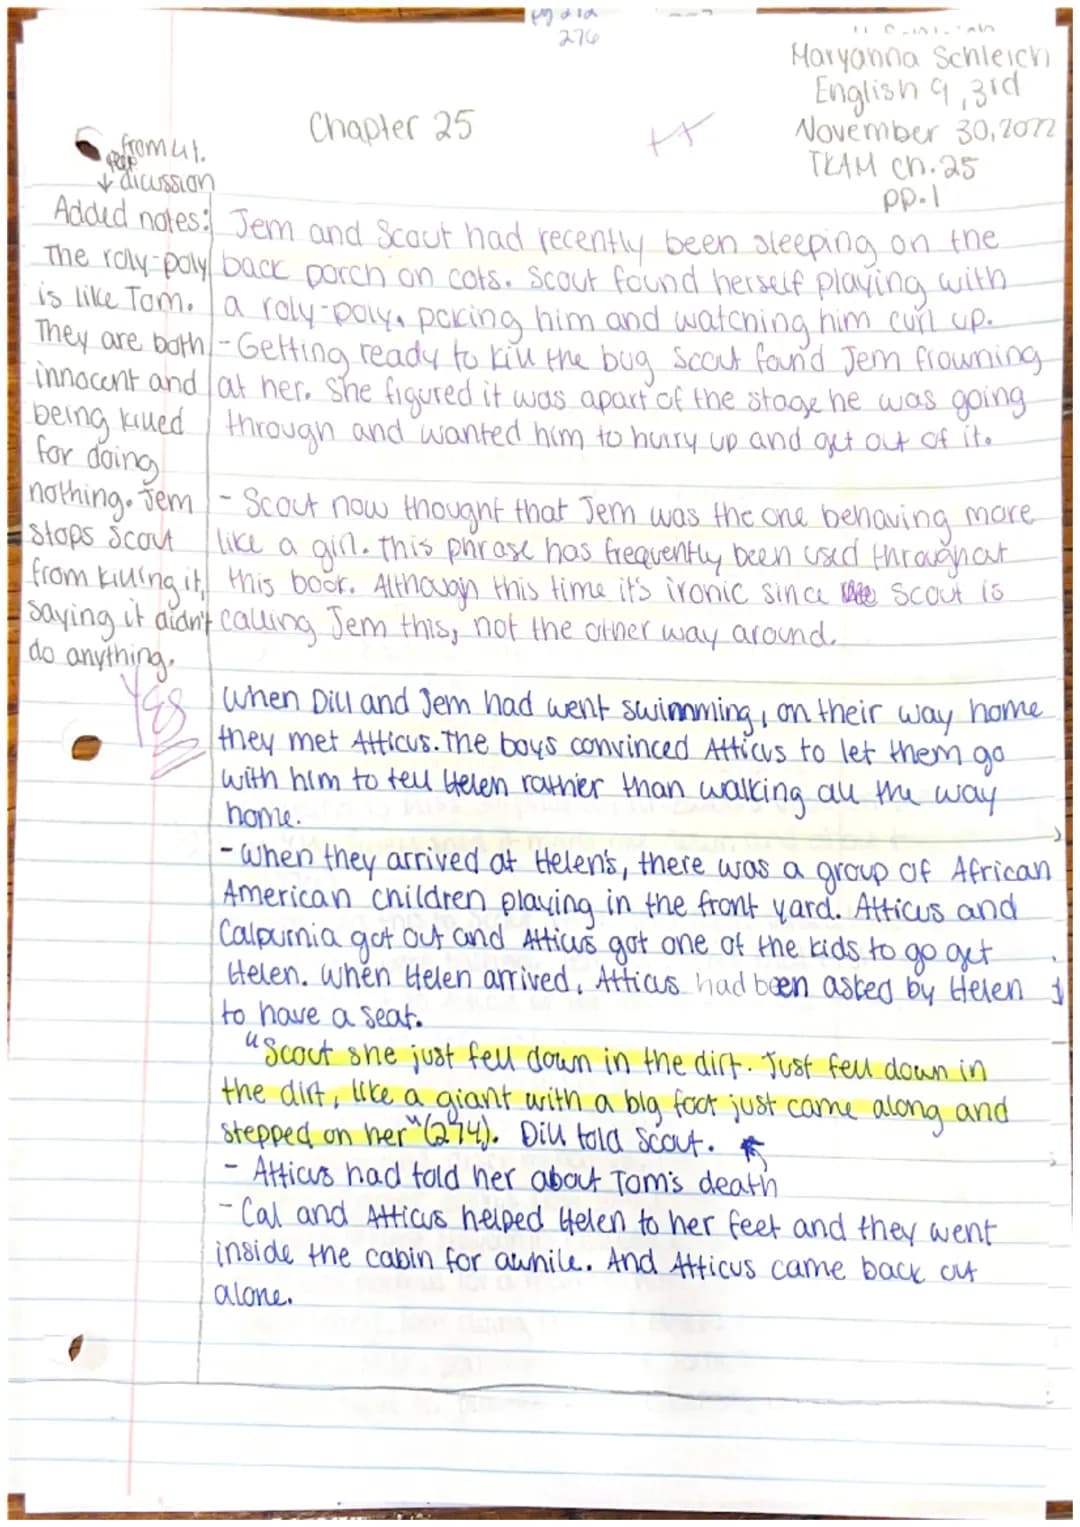 276
Maryanna Schleich
English 9, 3rd
November 30, 2022
TKAM Ch. 25
pp. 1
Chapter 25
++
from 4 1.
↓ dicussion
Added notes:
The roly-poly
is like Tom.
They are both
innocent and
being killed
for doing
nothing. Jem
stops Scout
from killing it,
saying it didn't
do anything.
Yes
Jem and Scout had recently been sleeping on the
back porch on cots. Scout found herself playing with
a roly-poly, poking him and watching him curl up.
- Getting ready to kill the bug Scout found Jem frowning
at her. She figured it was apart of the stage he was going
through and wanted him to hurry up and get out of it.
- Scout now thought that Jem was the one behaving more
like a girl. This phrase has frequently been used throughout
this book. Although this time it's ironic since Scout is
calling Jem this, not the other way around.
When Dill and Jem had went swimming, on their way home
they met Atticus. The boys convinced Atticus to let them go
with him to tell Helen rather than walking all the way
home.
- When they arrived at Helen's, there was a group of African
American children playing in the front yard. Atticus and
Calpurnia got out and Atticus got one of the kids to go get
Helen. When Helen arrived, Atticus had been asked by Helen
to have a seat.
"Scout she just fell down in the dirt. Just fell down in
the dirt, like a giant with a big foot just came along and
stepped on her" (274). Dill told Scout.
- Atticus had told her about Tom's death
- Cal and Atticus helped Helen to her feet and they went
inside the cabin for awhile. And Atticus came back out
alone.